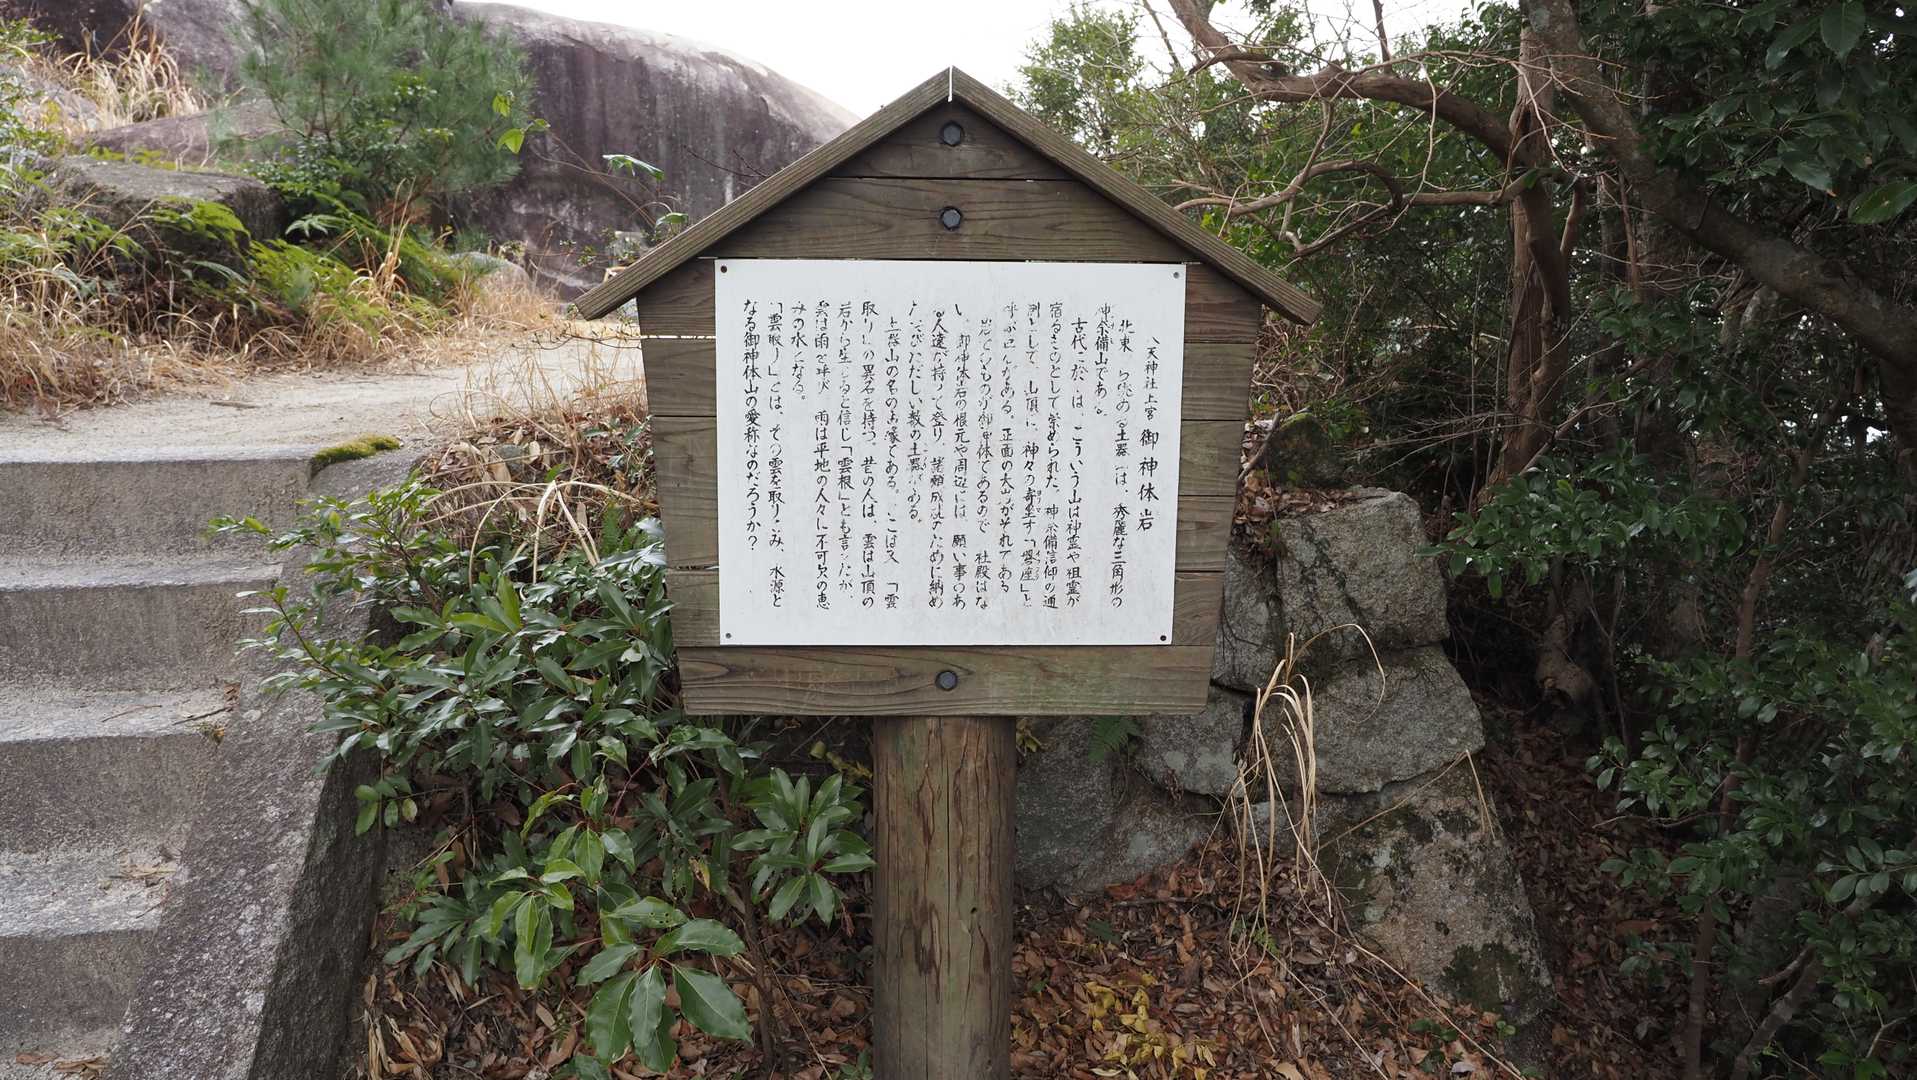 八天神社上宮 御神体岩
北東 ら眺める土器 は、秀麗な三角形の
神奈備山である
古代に於ては、こういう山は神霊や祖霊が
宿るところとして崇められた。神奈備信仰の通
例として、山頂に、神々の寄坐す「磐座」と
呼ぶ岩がある。正面の大岩がそれである
岩そのものが御神体であるので 社殿はな
い 御神体岩の根元や周辺には 願い事のあ
る人達が持って登り、諸願成就のために納め
たおびただしい数の土器がある。
土器山の名の由縁である。ここは又 「雲
取り」の異名を持つ。昔の人は、雲は山頂の
岩から生じると信じ「雲根」とも言ったが、
雲は雨を呼び 雨は平地の人々に不可欠の恵
みの水となる。
「雲取り」とは、その雲を取りこみ、水源と
なる御神体山の愛称なのだろうか?